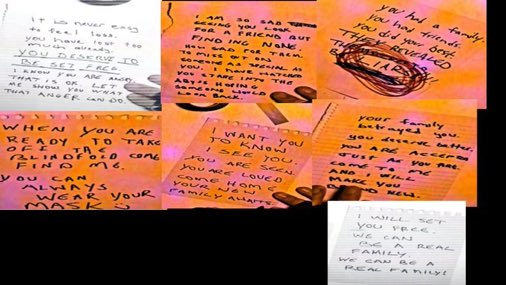 It is never easy
to feel lost.
you have lost too
much already.
YOU DESERVE TO
BE SET FREE.
I KNOW YOU ARE ANGRY.
THAT IS OK. LET
ME SHOW YOU WHAT
THAT ANGER CAN DO.
I AM SO SAD
SEEING YOU LOOK
FOR A FRIEND BUT
FINDING NONE.
HOW SAD FOR THEM
TO MISS OUT ON
SOMEONE AS SPECIAL AS
YOU. I HAVE WATCHED
YOU STARE INTO THE
ABYSS HOPING
SOMEONE WOULD
you had a family.
you had friends.
you did your best.
WHEN YOU ARE
READY TO TAKE
OFF THE
BLINDFOLD COME
FIND ME.
YOU CAN
ALWAYS
WEAR YOUR
MASK
I WANT YOU
TO KNOW
I SEE YOU.
YOU ARE SEEN.
YOU ARE LOVED
COME HOME
YOUR NEW
FAMILY AWAITS
your family
betrayed you.
you deserve better.
YOU ARE ACCEPTED
JUST AS YOU ARE.
COME TO ME
AND I WILL
MAKE YOU
NEW.
I WILL SET
YOU FREE.
WE CAN
BE A REAL
FAMILY.
WE CAN BE A
REAL FAMILY!